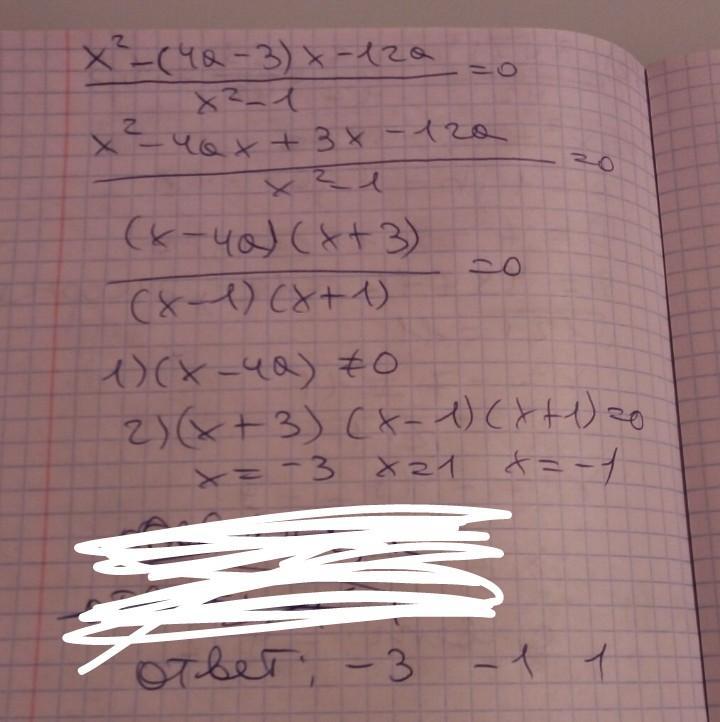 x²-(4a-3)x-12a
=0
x²-1
x²-4ax+3x-12a
=0
x²-1
(x-4a)(x+3)
=0
(x-1)(x+1)
1)(x-4a)≠0
2)(x+3)(x-1)(x+1)=0
x=-3 x=1 x=-1
ответ: -3 -1 1